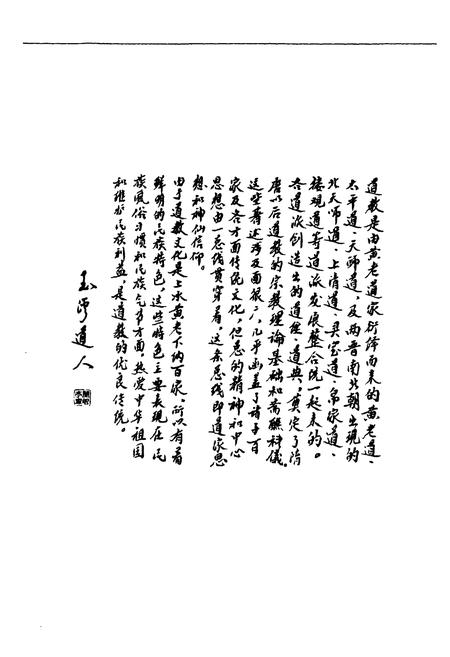 道教是由黄老道家衍绎而来的黄老道、
太平道、天师道，及两晋南北朝出现的
北天师道、上清道、灵宝道、帛家道、
楼观道等道派发展整合统一起来的。
各道派创造出的道经、道典，奠定了隋
唐以后道教的宗教理论基础和斋醮科仪。
这些著述涉及面很广，几乎函盖了诸子百
家及各方面传统文化，但总的精神和中心
思想由一总线贯穿着。这条总线即道家思
想和神仙信仰。
由于道教文化是上承黄老下纳百家，所以有着
鲜明的民族特色，这些特色主要表现在民
族风俗习惯和民族气节方面，热爱中华祖国
和维护民族利益，是道教的优良传统。
玉溪道人